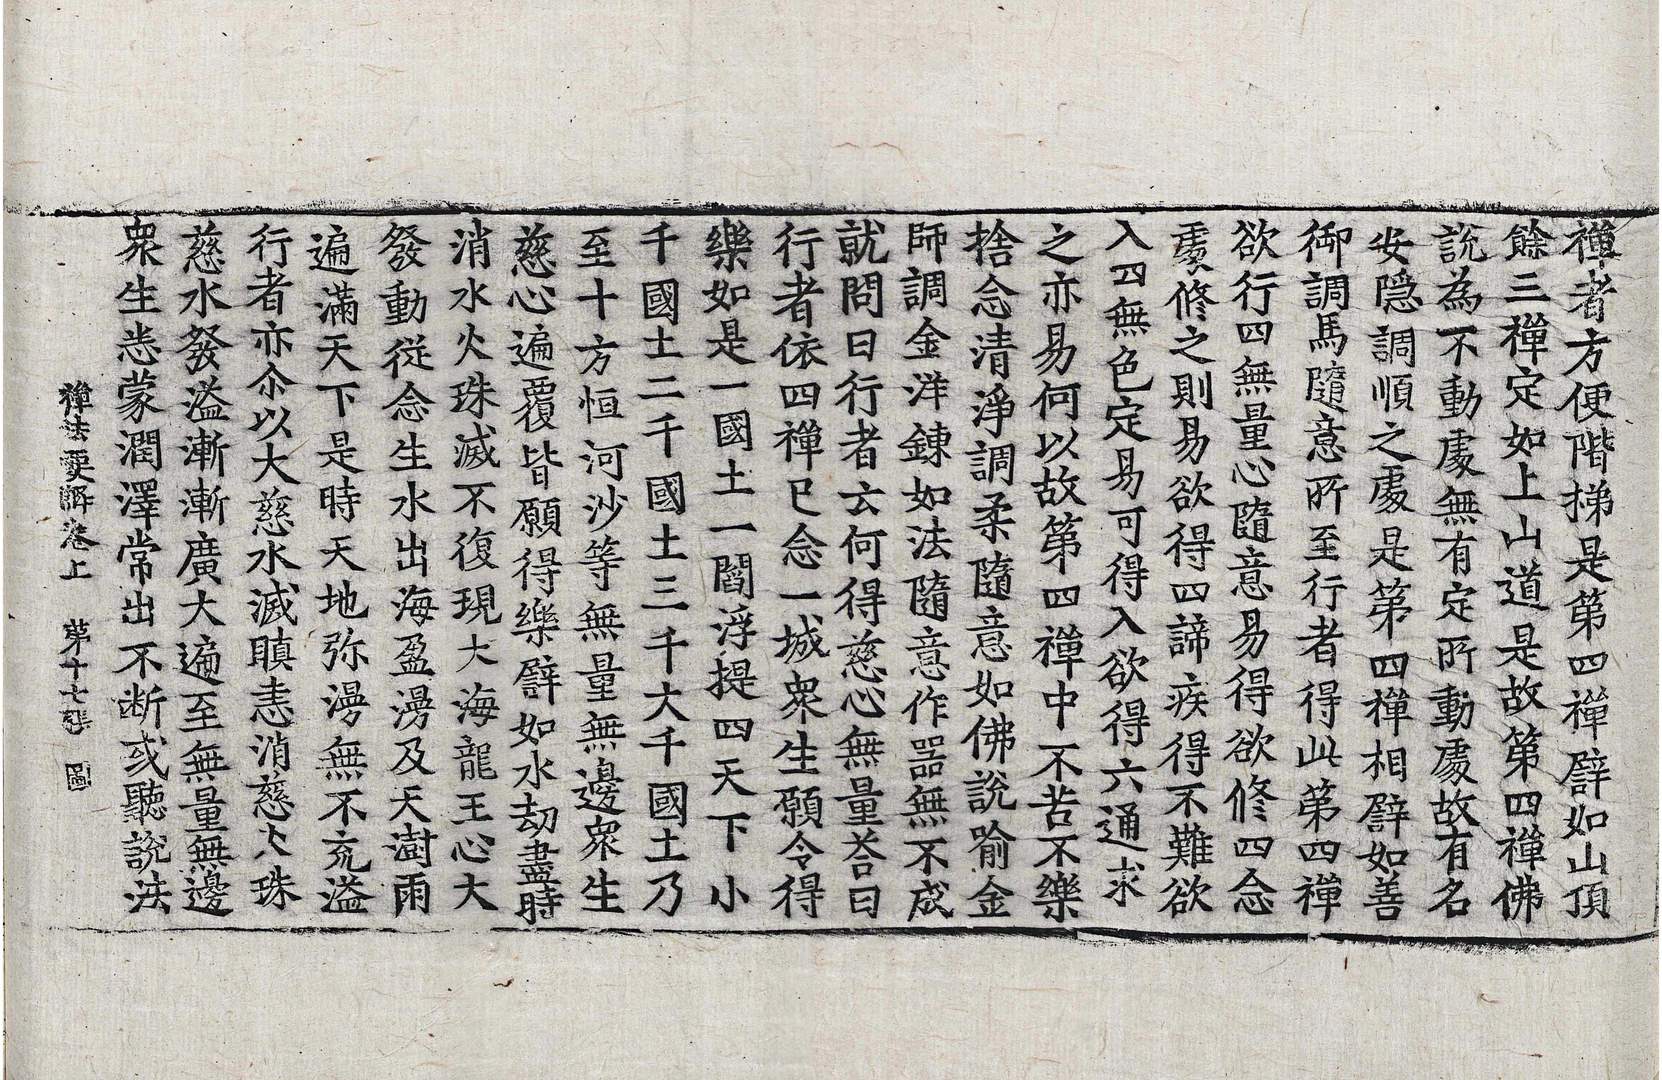 禪者方便階梯是第四禪譬如山頂
餘三禪定如上山道是故第四禪佛
說為不動處無有定所動處故有名
安隱調順之處是第四禪相譬如善
御調馬隨意所至行者得此第四禪
欲行四無量心隨意易得欲修四念
處修之則易欲得四諦疾得不難欲
入四無色定易可得入欲得六通求
之亦易何以故第四禪中不苦不樂
捨念清淨調柔隨意如佛說喻金
師調金洋鍊如法隨意作器無不成
就問曰行者云何得慈心無量荅曰
行者依四禪已念一城衆生願令得
樂如是一國土一閻浮提四天下小
千國土二千國土三千大千國土乃
至十方恒河沙等無量無邊衆生
慈心遍覆皆願得樂譬如水劫盡時
消水火珠滅不復現大海龍王心大
發動從念生水出海盈漫及天澍雨
遍滿天下是時天地弥漫無不充溢
行者亦尒以大慈水滅瞋恚消慈火珠
慈水發溢漸漸廣大遍至無量無邊
衆生悉蒙潤澤常出不断或聽說法
禪法要解卷上　第十七張　圖